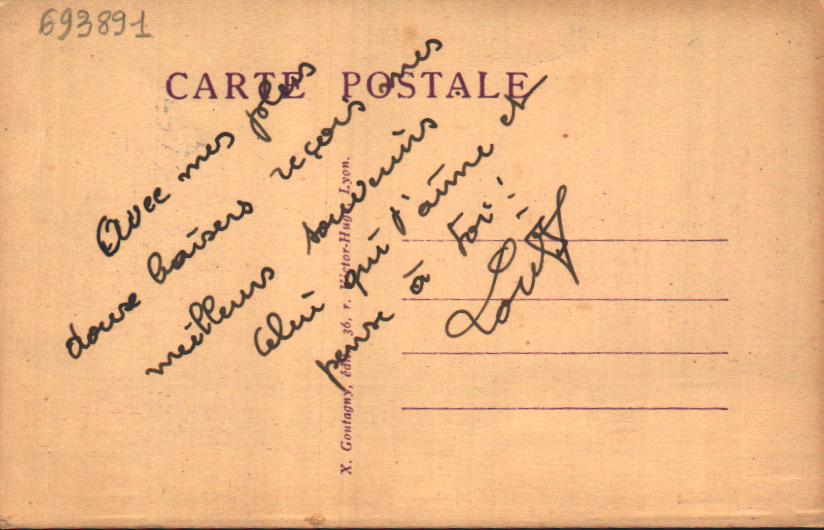 693891
CARTE POSTALE
Avec mes plus
doux baisers reçois mes
meilleurs souvenirs.
Celui qui j'aime et
pense à toi!
X. Goutagny, édit., 36, r. Victor-Hugo, Lyon.